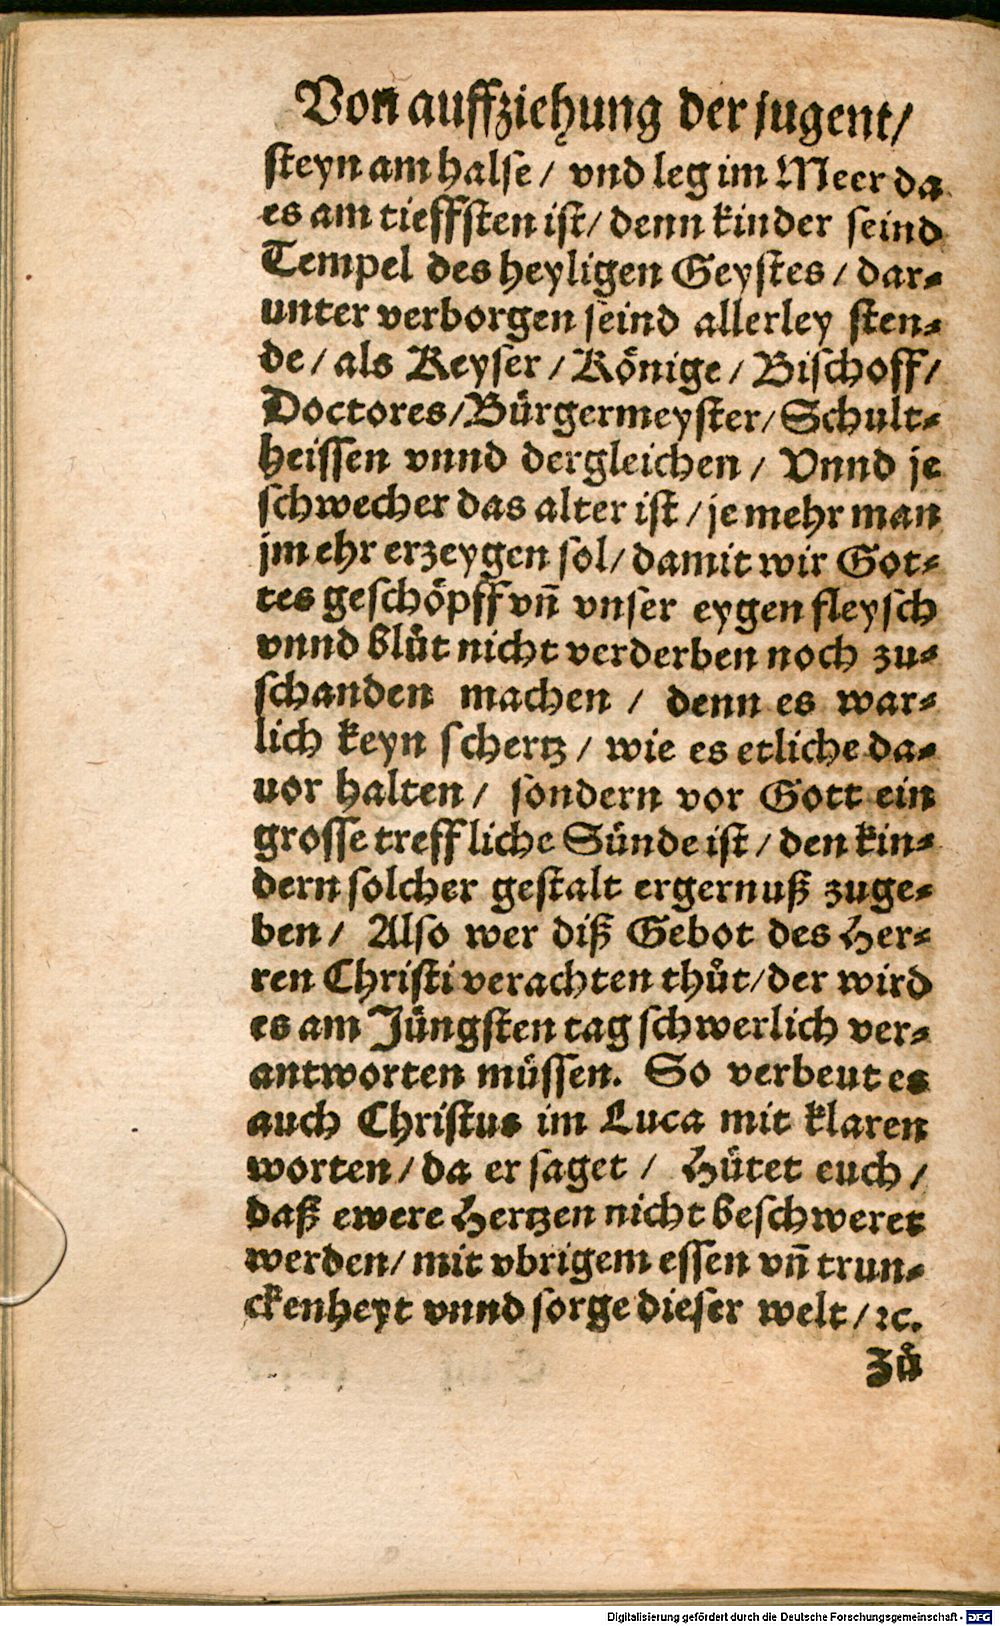 Von auffziehung der jugent/
steyn am halse / vnd leg im Meer da
es am tieffsten ist/ denn kinder seind
Tempel des heyligen Geystes / dar-
unter verborgen seind allerley sten-
de / als Keyser / Könige / Bischoff /
Doctores/Bürgermeyster/ Schult-
heissen vnnd dergleichen / Vnnd je
schwecher das alter ist / je mehr man
jm ehr erzeygen sol/ damit wir Got-
tes geschöpff vñ vnser eygen fleysch
vnnd blůt nicht verderben noch zu-
schanden machen / denn es war-
lich keyn schertz / wie es etliche da-
uor halten / sondern vor Gott ein
grosse treffliche Sünde ist / den kin-
dern solcher gestalt ergernuß zuge-
ben / Also wer diß Gebot des Her-
ren Christi verachten thůt/der wird
es am Jüngsten tag schwerlich ver-
antworten müssen. So verbeut es
auch Christus im Luca mit klaren
worten / da er saget / Hütet euch /
daß ewere Hertzen nicht beschweret
werden/ mit vbrigem essen vñ trun-
ckenheyt vnnd sorge dieser welt / ꝛc.
Zů
Digitalisierung gefördert durch die Deutsche Forschungsgemeinschaft - DFG